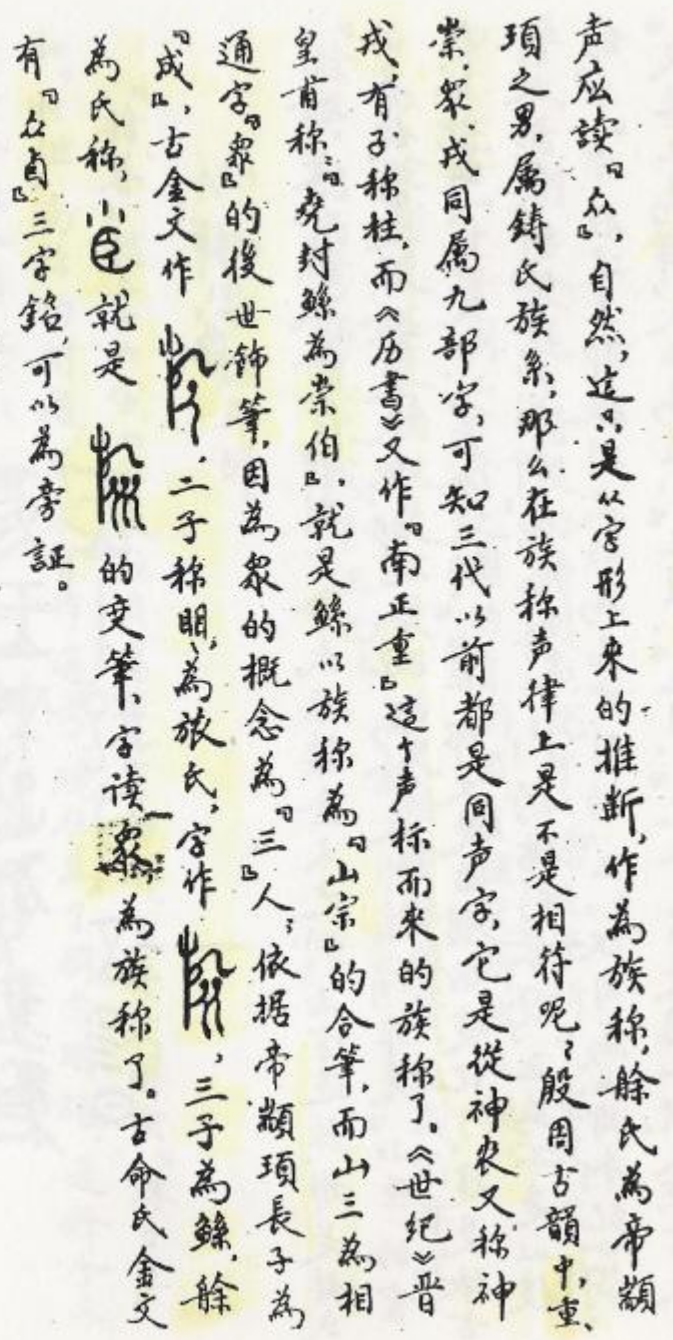 声应读『众』，自然，这只是从字形上来的推断，作為族称，艅氏為帝顓
頊之男，属鋳氏族系，那么在族称声律上是不是相符呢；殷周古韻中，重、
崇、眾、戎同属九部字，可知三代以前都是同声字，它是從神农又称神
戎，有子称柱，而《历書》又作『南正重』这个声标而來的族称了。《世纪》晋
皇甫称：『堯封鯀為崇伯』，就是鯀以族称為『山宗』的合筆，而山三為相
通字『眾』的後世飾筆，因為眾的概念為『三』人；依据帝顓頊長子為
『成』，古金文作，二子称明，為旅氏，字作，三子為鯀，艅
為氏称，小臣就是的变筆，字读眾，為族称了。古命氏金文
有『众貞』三字銘，可以為旁証。